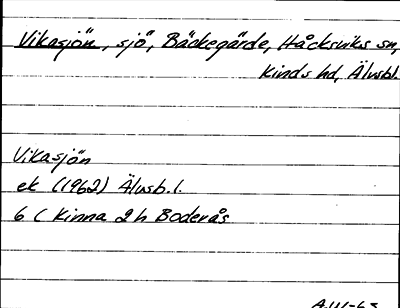 Vikasjön, sjö, Bäckegärde, Håcksviks sn,
Kinds hd, Älvsbl.
Vikasjön
ek (1962) Älvsb. l.
6 C Kinna 2 h Boderås